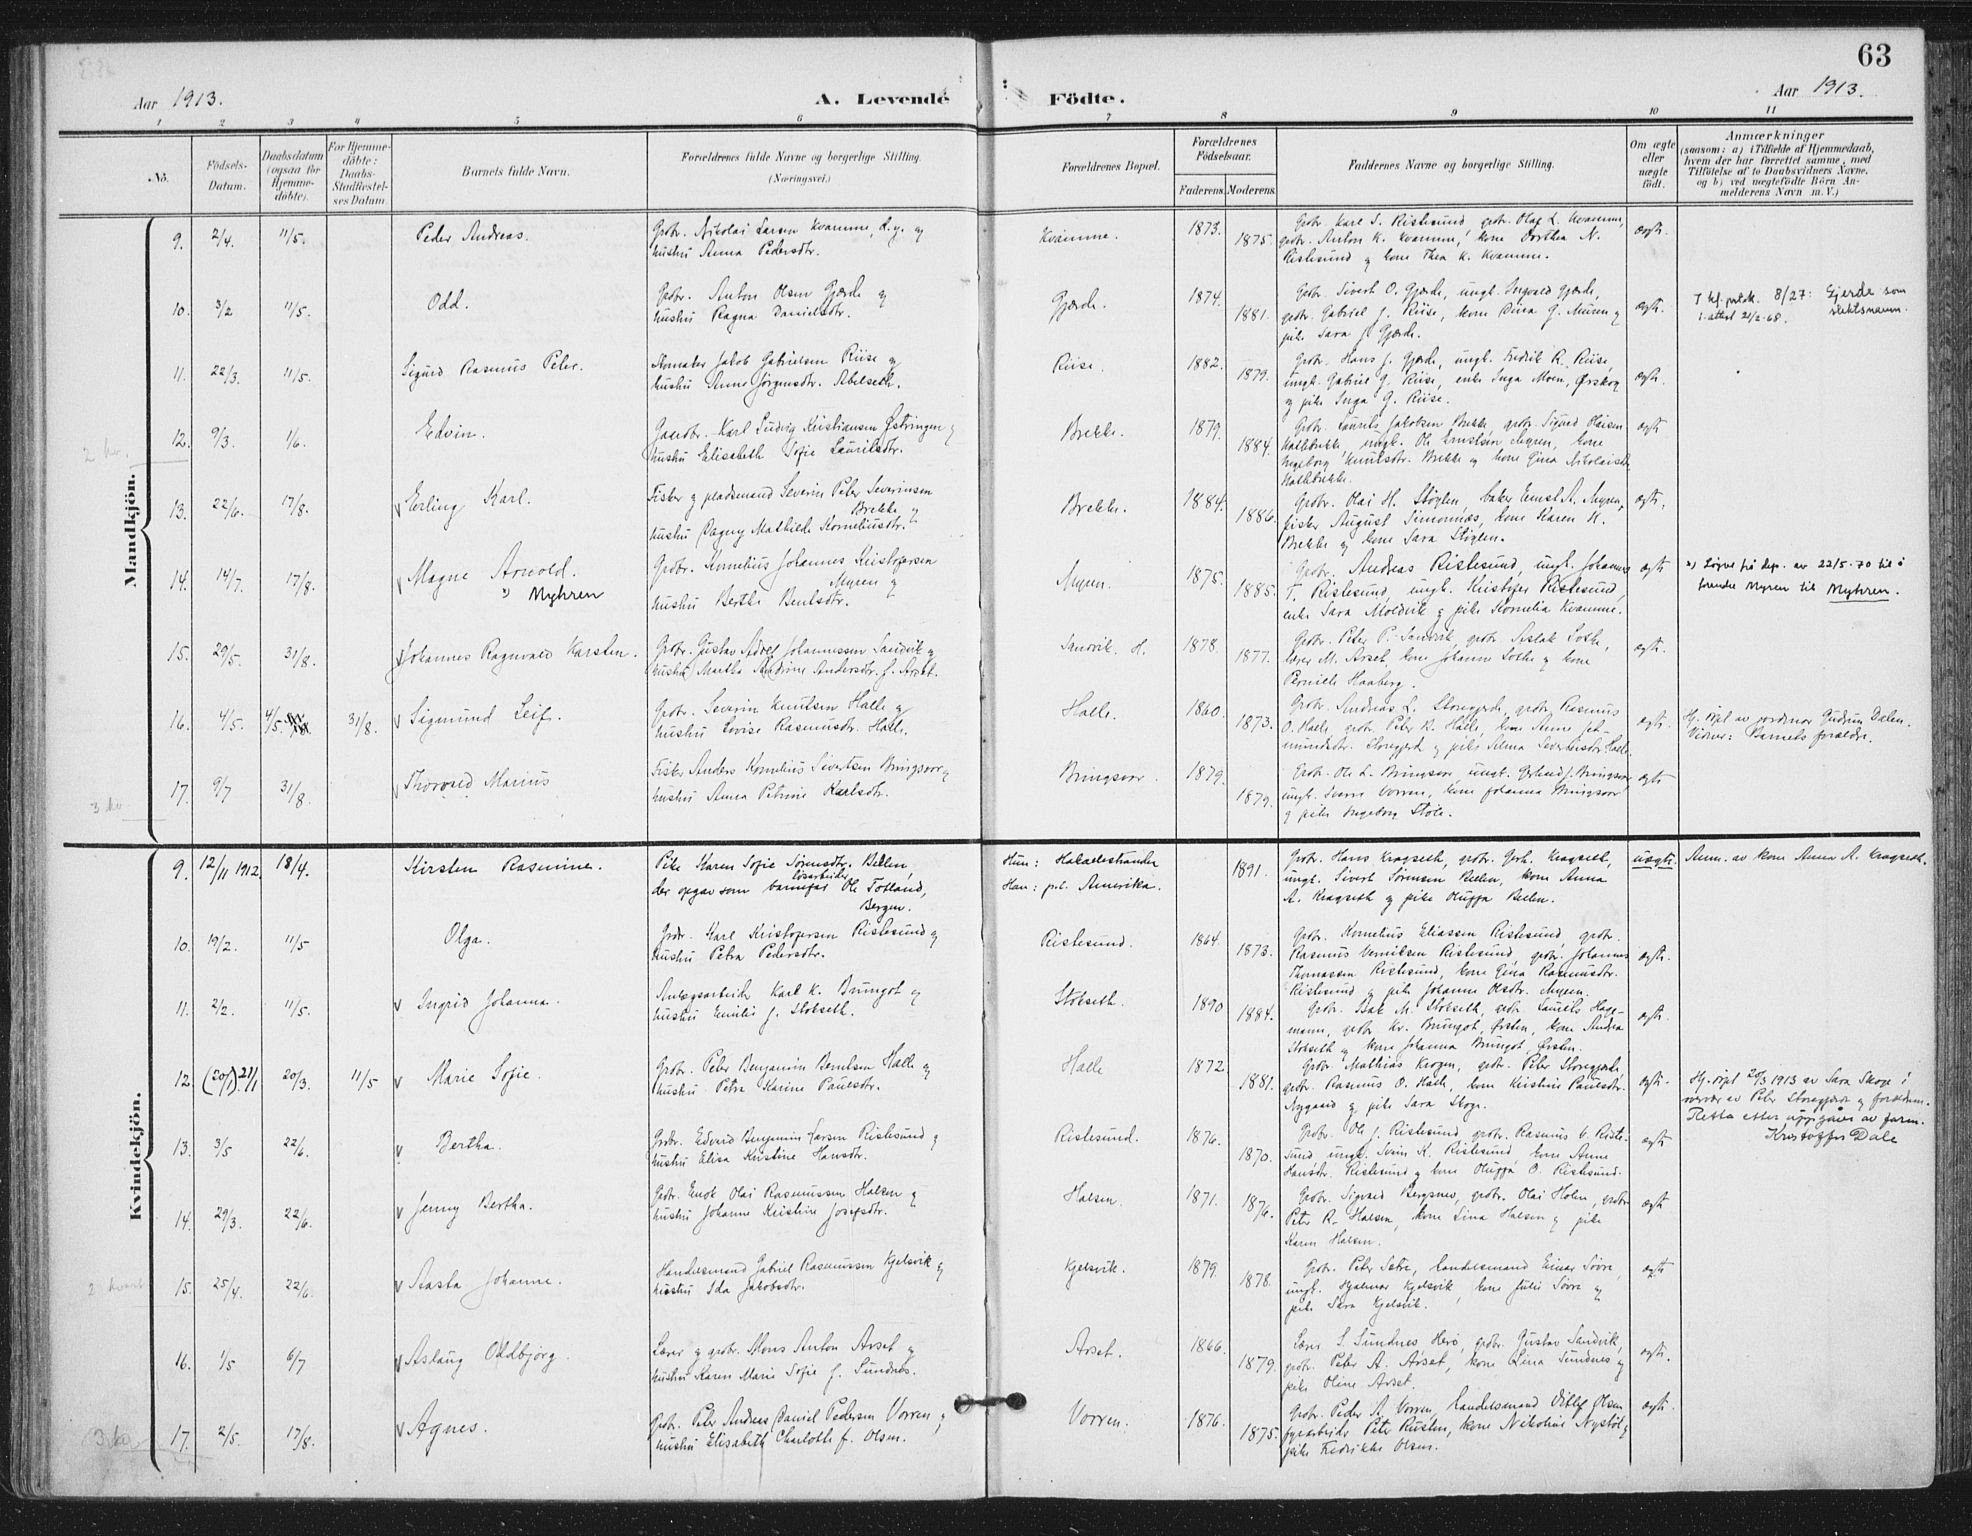 63
Aar 1913.
A. Levende
Födte.
Aar 1913.
1 2 3 4 5 6 7 8 9 10 11
No.
Födsels-
Datum.
Daabsdatum
(ogsaa for
Hjemme-
döbte).
For Hjemme-
döbte:
Daabs-
Stadfæstel-
ses Datum.
Barnets fulde Navn.
Forældrenes fulde Navne og borgerlige Stilling.
(Næringsvei.)
Forældrenes Bopæl.
Forældrenes
Födselsaar.
Faderens. Moderens.
Faddernes Navne og borgerlige Stilling.
Om ægte
eller
uægte
födt.
Anmærkninger
(saasom: a) i Tilfælde af Hjemmedaab,
hvem der har forrettet samme, med
Tilföielse af to Daabsvidners Navne,
og b) ved uægtefödte Börn An-
melderens Navn m. V.)
Mandkjön.
9. 2/4. 11/5. Peder Andreas.
Grbr. Nikolai Larsen Kvamme, d.y. og
hustru Anna Pedersdtr.
Kvamme. 1873. 1875.
Grbr. Karl S. Ristesund, grbr. Olaf L. Kvamme,
grbr. Anton K. Kvamme, kone Dorthea N.
Ristesund og kone Thea K. Kvamme.
ægte.
10. 3/2 11/5. Odd.
Grbr. Anton Olsen Gjærde og
hustru Ragna Danielsdtr.
Gjærde. 1874. 1881.
Grbr. Sivert O. Gjærde, ungk. Ingvald Gjærde,
grbr. Gabriel J. Riise, kone Dina G. Muren og
pike Sara J. Gjærde.
ægte.
8/27: Gjerde som
slektsnavn.
i attest 21/2-68.
11. 22/3. 11/5. Sigurd Rasmus Peter.
Skomaker Jakob Gabrielsen Riise og
hustru Anne Jörgensdtr. Abelseth.
Riise. 1882. 1879.
Grbr. Hans J. Gjærde, ungk. Fredrik R. Riise,
ungk. Gabriel G. Riise, enke Inga Moen, Ørskog
og pike Inga G. Riise.
ægte.
2 kv.
12. 9/3. 1/6. Edvin.
Karl Ludvig Kristiansen Østringen og
hustru Elisabeth Sofie Lauritsdtr.
Brekke. 1879. 1884.
Grbr. Laurits Jakobsen Brekke, grbr. Sigurd Olaisen
Hallebrekke, ungk. Ole Ernstsen Myren, kone
Ingeborg Knutsdtr. Brekke og kone Gina Nikolaisdtr.
Hallebrekke.
ægte
13. 22/6. 17/8. Erling Karl.
Fisker og pladsmand Severin Peter Severinsen
Brekke og
hustru Dagny Mathilde Korneliusdtr.
Brekke. 1884. 1886.
Grbr. Olai H. Stöylen, baker Ernst A. Myren,
fisker August Simonnæs, kone Karen K.
Brekke og kone Sara Stöylen.
ægte.
14. 14/7. 17/8. Magne Arnold.
x) Myhren
Grbr. Kornelius Johannes Kristofersen
Myren og
hustru Berthe Bentsdtr.
Myren. 1875. 1885.
Grbr. Andreas Ristesund, ungk. Johannes
T. Ristesund, ungk. Kristofer Ristesund,
enke Sara Moldvik og pike Kornelia Kvamme.
ægte
x) Løyve frå dep. av 22/5-70 til å
forandre Myren til Myhren.
15. 29/5. 31/8. Johannes Ragnvald Karsten.
Grbr. Gustav Adolf Johannessen Sandvik og
hustru Martha Andrine Andersdtr. f. Arset.
Sandvik. H. 1878. 1877.
Grbr. Peter P. Sandvik, grbr. Aslak Sothe,
lærer M. Arset, kone Johanne Sothe og kone
Pernille Haaberg.
ægte.
16. 4/5. 4/5. 31/8. Sigmund Leif.
Grbr. Severin Knutsen Halle og
hustru Lovise Rasmusdtr. Halle.
Halle. 1860. 1873.
Grbr. Andreas L. Storegjerde, grbr. Rasmus
O. Halle, grbr. Peter R. Halle, kone Anne Jet-
mundsdtr. Storegjerd og pike Selma Severinsdtr. Halle.
ægte.
Hj. döpt av jordmor Gudrun Dalen.
Vidner: Barnets forældre.
3 kv
17. 9/7 31/8. Thorvald Marius
Fisker Anders Kornelius Sivertsen Bringsvor og
hustru Anna Petrine Karlsdtr.
Bringsvor. 1879. 1879.
Grbr. Ole L. Bringsvor, ungk. Gerhard J. Bringsvor
ungk. Sverre Vorren, kone Johanna Bringsvor
og pike Ingeborg Stöle.
ægte
Kvindekjön.
9. 12/11 1912. 18/4. Kirsten Rasmine.
Pike Karen Sofie Sörensdtr. Bellen,
lösarbeider
der opgav som barnefar Ole Totland,
Bergen.
Hun: Haldalestranden
Han: p.t. Amerika.
1891.
Grbr. Hans Kragseth, grbr. Gerh. Kragseth,
ungk. Sivert Sörensen Bellen, kone Anna
A. Kragseth og pike Huppa Bellen.
uægte.
Anm. av kone Anna A. Kragseth.
10. 19/2. 11/5 Olga.
Grbr. Karl Kristofersen Ristesund og
hustru Petra Pedersdtr.
Ristesund. 1864. 1873.
Grbr. Kornelius Eliassen Ristesund, grbr.
Rasmus Henriksen Ristesund, grbr. Johannes
Thomassen Ristesund, kone Gina Rasmusdtr.
Ristesund og pike Johanne Olsdtr. Myren.
ægte.
11. 2/2. 11/5. Ingrid Johanna.
Anlægsarbeider Karl K. Brungot og
hustru Emilie J. Stokseth.
Stokseth. 1890 1884.
Grbr. Isak M. Stokseth, grbr. Laurits Hage-
mann, grbr. Kr. Brungot, Ørsten, kone Andrea
Stokseth og kone Johanna Brungot, Ørsten.
ægte.
12. (20/1) 21/1 20/3. 11/5 Marie Sofie.
Grbr. Peter Benjamin Berntsen Halle og
hustru Petra Karine Paulsdtr.
Halle 1872 1881.
Grbr. Mathias Krogen, grbr. Peter Storegjerde,
grbr. Rasmus O. Halle, kone Kristine Paulsdtr.
Nygaard og pike Sara Skoge.
ægte.
Hj. döpt 20/3 1913 av Sara Skoge i
overvær av Peter Storegjerde og forældrene.
Retta etter uppgåve av faren.
Kristoffer Dale
13. 3/5 22/6. Bertha.
Grbr. Edvard Benjamin Larsen Ristesund og
hustru Elisa Kristine Hansdtr.
Ristesund. 1876. 1870.
Grbr. Ole J. Ristesund, grbr. Rasmus C. Riste-
sund, ungk. Svein K. Ristesund, kone Anne
Hansdtr. Ristesund og kone Huppa O. Ristesund.
ægte
14. 29/3. 22/6. Jenny Bertha.
Grbr. Enok Olai Rasmussen Halsen og
hustru Johanne Kristine Josefsdtr.
Halsen. 1871. 1876.
Grbr. Sigvald Bergsnev, grbr. Olai Holen, grbr.
Peter R. Halsen, kone Lina Halsen og pike
Karen Halsen.
ægte
2 kvart
15. 25/4. 22/6. Aasta Johanne.
Handelsmand Gabriel Rasmussen Kjelsvik og
hustru Ida Jakobsdtr.
Kjelsvik. 1879. 1878.
Grbr. Petr Sætre, handelsmand Einar Sövre,
ungk. Hjalmar Kjelsvik, kone Julie Sövre og
pike Sara Kjelsvik.
ægte
16. 1/5 6/7 Aslaug Oddbjörg.
Lærer og grbr. Mons Anton Arset og
hustru Karen Marie Sofie f. Sundnes.
Arset. 1866. 1879.
Lærer S. Sundnes, Herö, grbr. Gustav Sandvik,
grbr. Peter A. Arset, kone Lina Sundnes og
pike Oline Arset.
ægte.
3 kv
17. 2/5. 17/8. Agnes.
Grbr. Peter Andreas Daniel Pedersen Vorren og
hustru Elisabeth Charlotte f. Olsen.
Vorren. 1876. 1875.
Grbr. Peder A. Vorren, handelsmand Olsen
fyrarbeider Peter Rusten, kone Nikoline Nystöl og
pike Fredrikke Olsen.
ægte.